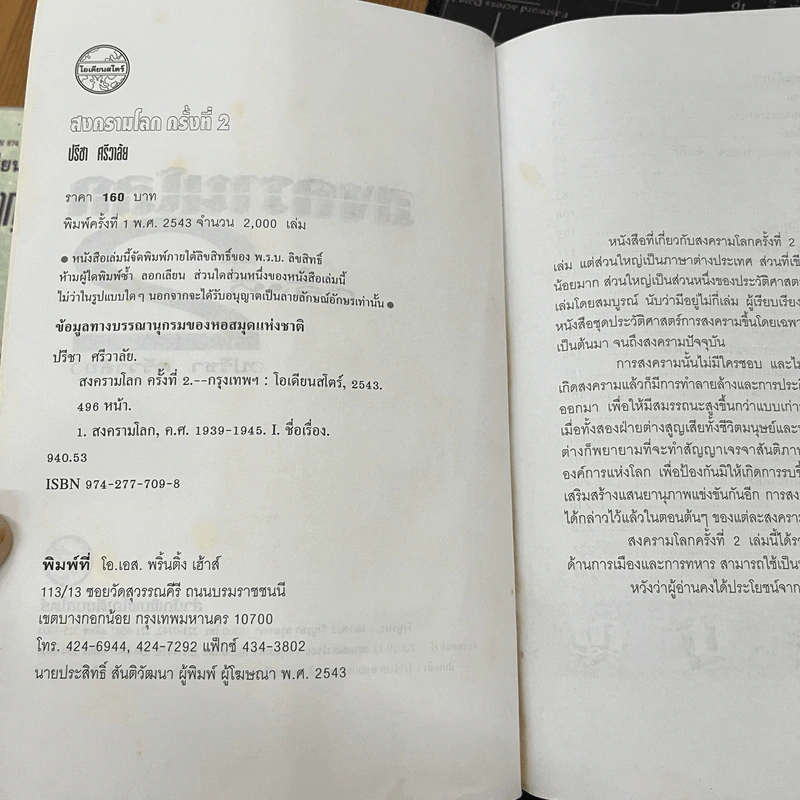 โอเดียนสโตร์
สงครามโลก ครั้งที่ 2
ปรีชา ศรีวาลัย
ราคา 160 บาท
พิมพ์ครั้งที่ 1 พ.ศ. 2543 จำนวน 2,000 เล่ม
● หนังสือเล่มนี้จัดพิมพ์ภายใต้ลิขสิทธิ์ของ พ.ร.บ. ลิขสิทธิ์
ห้ามผู้ใดพิมพ์ซ้ำ ลอกเลียน ส่วนใดส่วนหนึ่งของหนังสือเล่มนี้
ไม่ว่าในรูปแบบใด ๆ นอกจากจะได้รับอนุญาตเป็นลายลักษณ์อักษรเท่านั้น ●
ข้อมูลทางบรรณานุกรมของหอสมุดแห่งชาติ
ปรีชา ศรีวาลัย.
สงครามโลก ครั้งที่ 2.--กรุงเทพฯ : โอเดียนสโตร์, 2543.
496 หน้า.
1. สงครามโลก, ค.ศ. 1939-1945. I. ชื่อเรื่อง.
940.53
ISBN 974-277-709-8
พิมพ์ที่ โอ.เอส. พริ้นติ้ง เฮ้าส์
113/13 ซอยวัดสุวรรณคีรี ถนนบรมราชชนนี
เขตบางกอกน้อย กรุงเทพมหานคร 10700
โทร. 424-6944, 424-7292 แฟ็กซ์ 434-3802
นายประสิทธิ์ สันติวัฒนา ผู้พิมพ์ ผู้โฆษณา พ.ศ. 2543
หนังสือที่เกี่ยวกับสงครามโลกครั้งที่ 2
เล่ม แต่ส่วนใหญ่เป็นภาษาต่างประเทศ ส่วนที่เขี
น้อยมาก ส่วนใหญ่เป็นส่วนหนึ่งของประวัติศาสตร์
เล่มโดยสมบูรณ์ นับว่ามีอยู่ไม่กี่เล่ม ผู้เรียบเรียง
หนังสือชุดประวัติศาสตร์การสงครามขึ้นโดยเฉพา
เป็นต้นมา จนถึงสงครามปัจจุบัน
การสงครามนั้นไม่มีใครชอบ และไม่
เกิดสงครามแล้วก็มีการทำลายล้างและการประดิ
ออกมา เพื่อให้มีสมรรถนะสูงขึ้นกว่าแบบเก่า
เมื่อทั้งสองฝ่ายต่างสูญเสียทั้งชีวิตมนุษย์และ
ต่างก็พยายามที่จะทำสัญญาเจรจาสันติภา
องค์การแห่งโลก เพื่อป้องกันมิให้เกิดการรบขึ้
เสริมสร้างแสนยานุภาพแข่งขันกันอีก การสง
ได้กล่าวไว้แล้วในตอนต้นๆ ของแต่ละสงคราม
สงครามโลกครั้งที่ 2 เล่มนี้ได้รว
ด้านการเมืองและการทหาร สามารถใช้เป็น
หวังว่าผู้อ่านคงได้ประโยชน์จาก